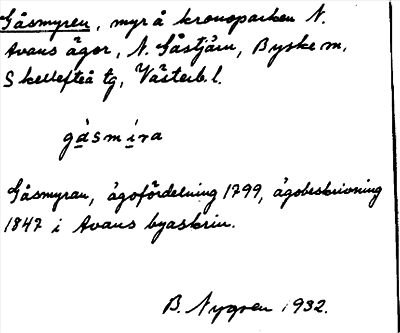 Gåsmyren, myr å kronoparken N.
Avans ägor, N. Gåstjärn, Byske sn,
Skellefteå tg, Västerb. l.
gåsmira
Gåsmyran, ägofördelning 1799, ägobeskrivning
1847 i Avans byaskrin.
B. Nygren 1932.